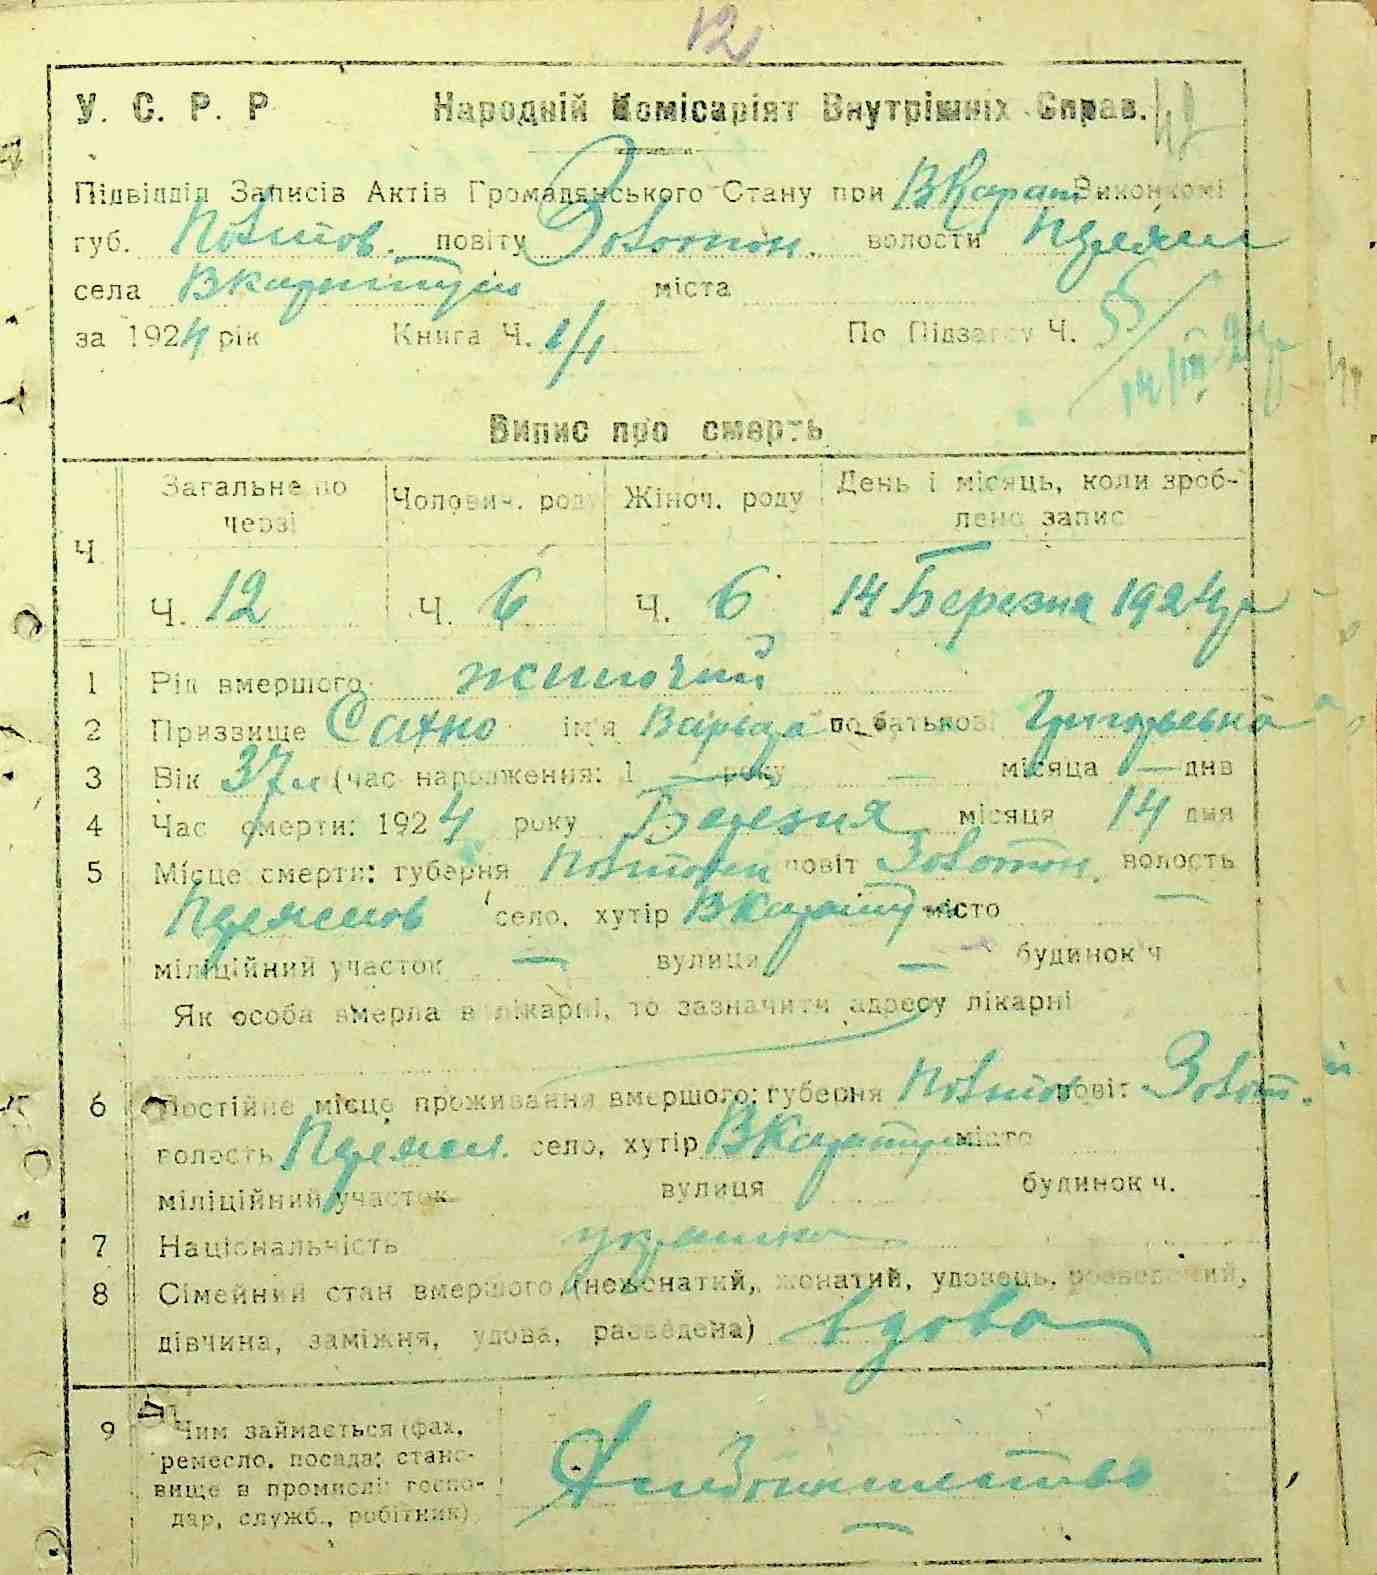 12
У. С. Р. Р Народній Комісаріят Внутрішніх Справ.
Підвідділ Записів Актів Громадянського Стану при ВКарат Виконкомі
губ. Полтов. повіту Золотон. волости
села ВКаратул міста
за 1924 рік Книга Ч. 1/1 По Підзагсу Ч.
14/III 24р
Випис про смерть
Ч. Загальне по Чолович. роду Жіноч. роду День і місяць, коли зроб-
черзі лено запис
Ч. 12 Ч. 6 Ч. 6 14 Березня 1924р
1 Рід вмершого жиночий
2 Призвище Сахно ім'я по батькові Григорьевна
3 Вік 37 л (час народження: 1 — року — місяца — днв
4 Час смерти: 1924 року Березня місяця 14 дня
5 Місце смерти: губерня повіт Золотон. волость
село, хутір ВКарат місто —
міліційний участок — вулиця — будинок ч
Як особа вмерла в лікарні, то зазначити адресу лікарні
6 Постійне місце проживання вмершого: губерня Полтов повіт Золот.
волость село, хутір ВКаратул місто
міліційний участок вулиця будинок ч.
7 Національність украинка
8 Сімейний стан вмершого (нежонатий, жонатий, удовець, розведений,
дівчина, заміжня, удова, разведена) вдова
9 Чим займається (фах,
ремесло, посада; стано-
вище в промислі: госпо-
дар, служб., робітник)
Хлибопашество